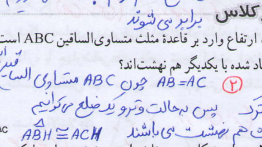 کلاس برابر می‌شوند
ارتفاع وارد بر قاعدهٔ مثلث متساوی‌الساقین ABC است
اد شده با یکدیگر هم نهشت‌اند؟
② AB=AC چون ABC متساوی الساقین
پس به حالت وتر و یک ضلع می‌توانیم
هم نهشت می‌باشند ABH ≅ ACH